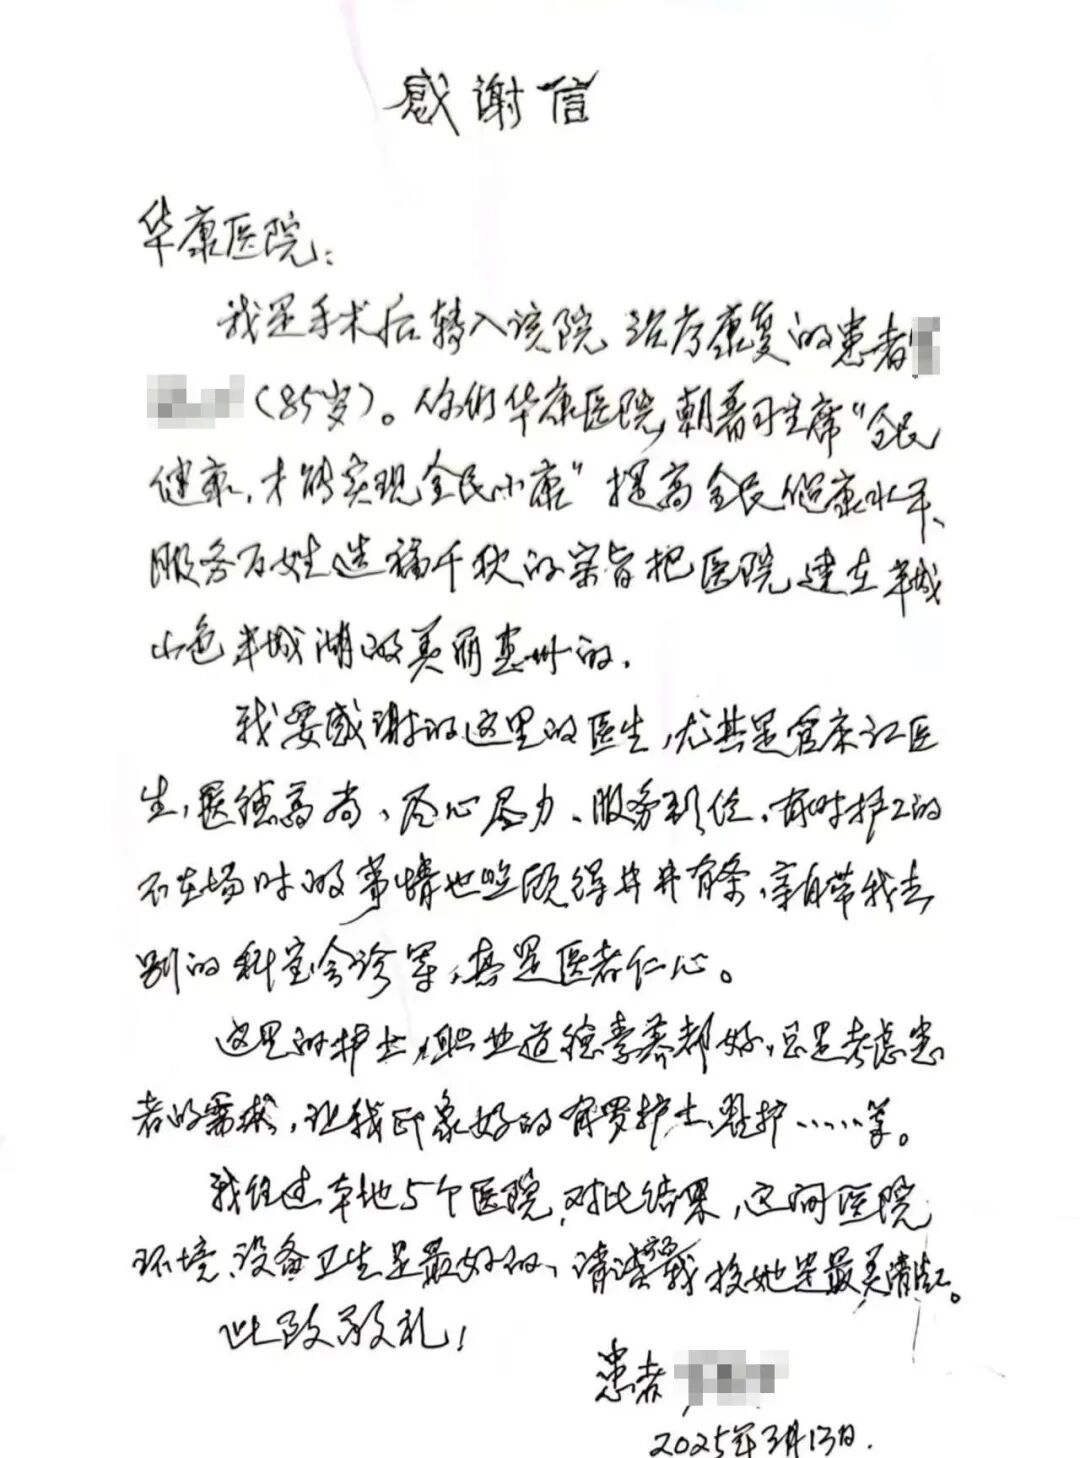 感谢信
华康医院：
我是手术后转入该院治疗康复的患者
（85岁）。你们华康医院，朝着习主席“全民
健康，才能实现全民小康”提高全民健康水平、
服务百姓造福千秋的宗旨把医院建在半城
山色半城湖的美丽惠州的，
我要感谢的这里的医生，尤其是官东江医
生，医德高尚，尽心尽力、服务到位，有时护工的
不在场时的事情也照顾得井井有条，亲自带我去
别的科室会诊等，真是医者仁心。
这里的护士，职业道德素养都好，总是考虑患
者的需求，让我印象好的有罗护士、瞿护……等。
我住过本地5个医院，对比结果，这间医院
环境、设备卫生是最好的，请容我投她是最美
此致敬礼！
患者
2025年3月13日.